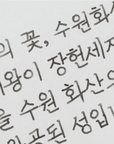 의 꽃, 수원화
왕이 장헌세
을 수원 화산의
공된 성입